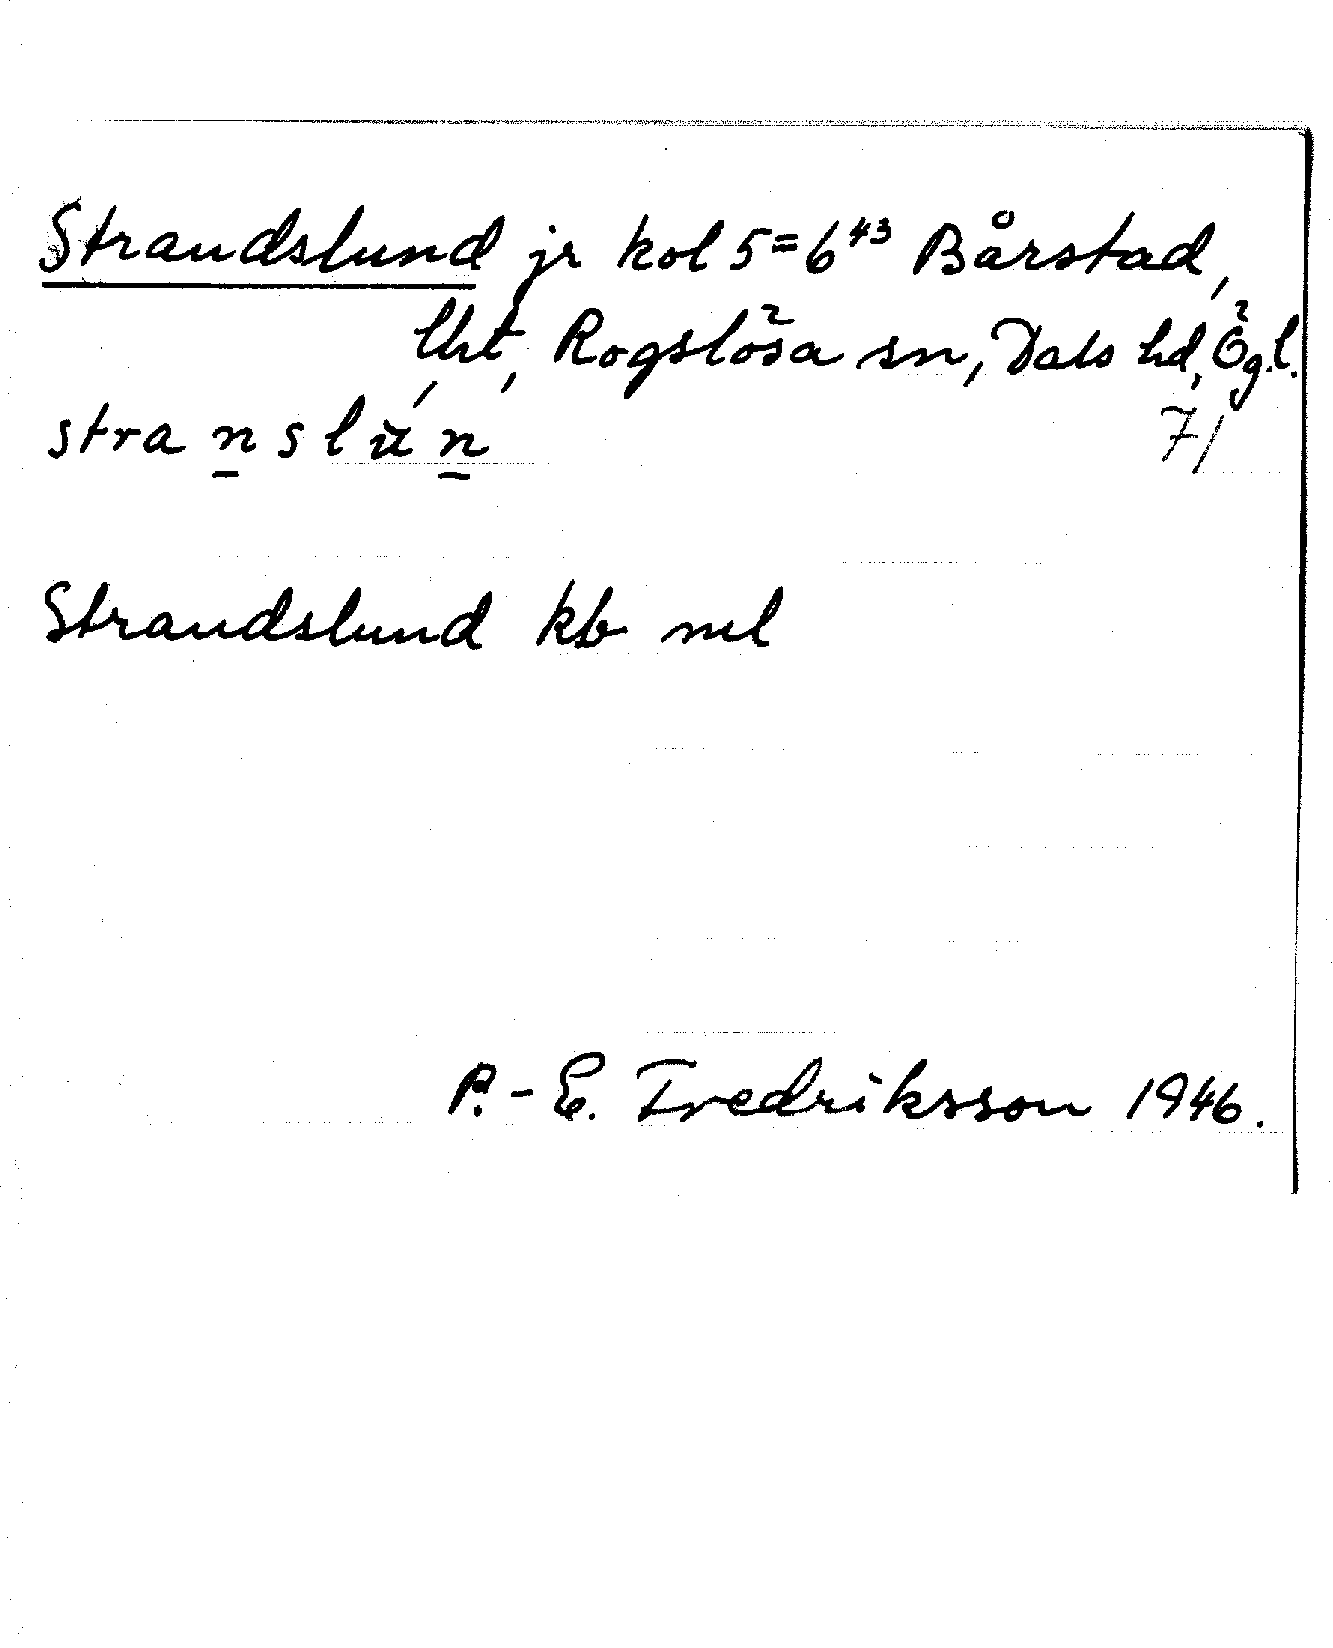 Strandslund jr kol 5=6⁴³ Bårstad,
lht, Rogslösa sn, Dals hd, Ögl.
stranslún
7/
Strandslund kb ml
P.-E. Fredriksson 1946.